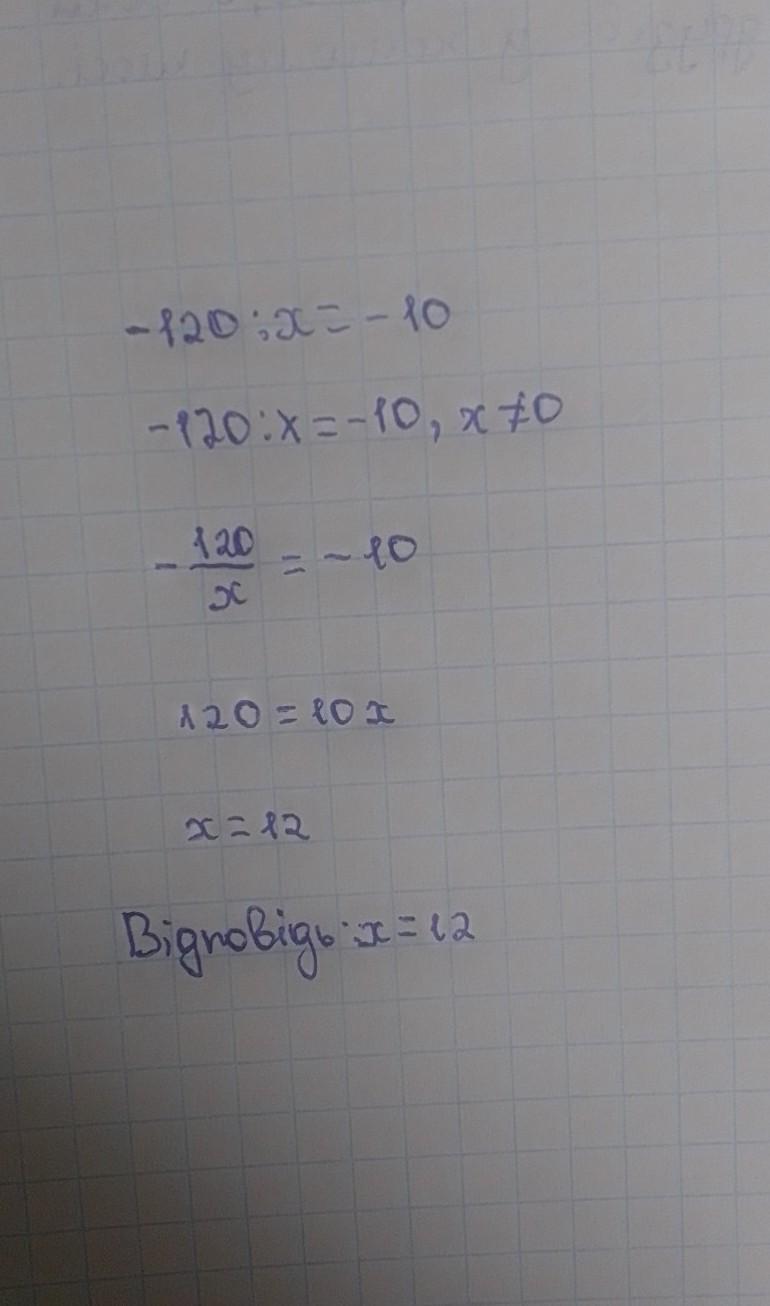 -120:x=-10
-120:x=-10, x≠0
-120/x=-10
120=10x
x=12
Відповідь: x=12